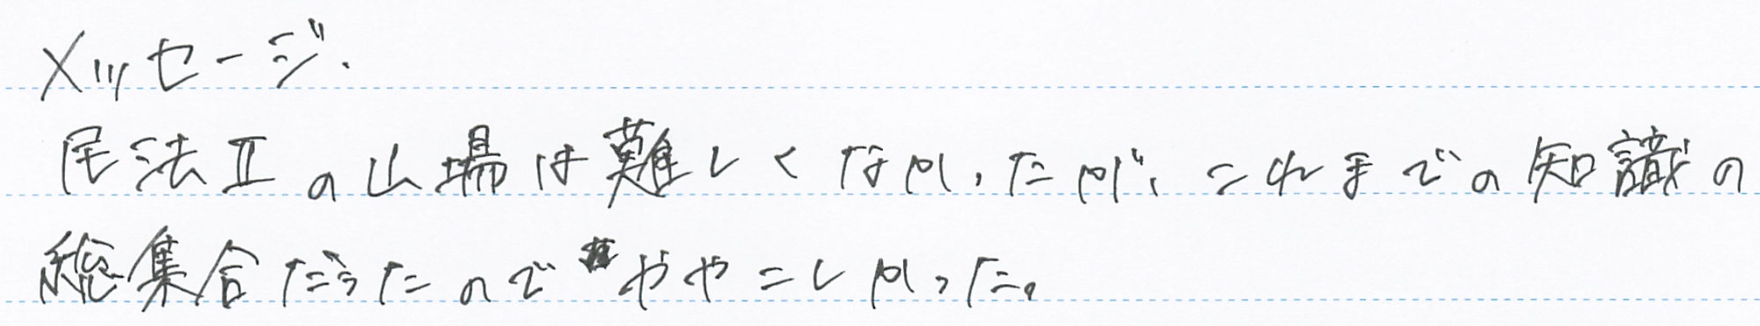 メッセージ.
民法Ⅱの山場は難しくなかったが、これまでの知識の
総集合だったのでややこしかった。